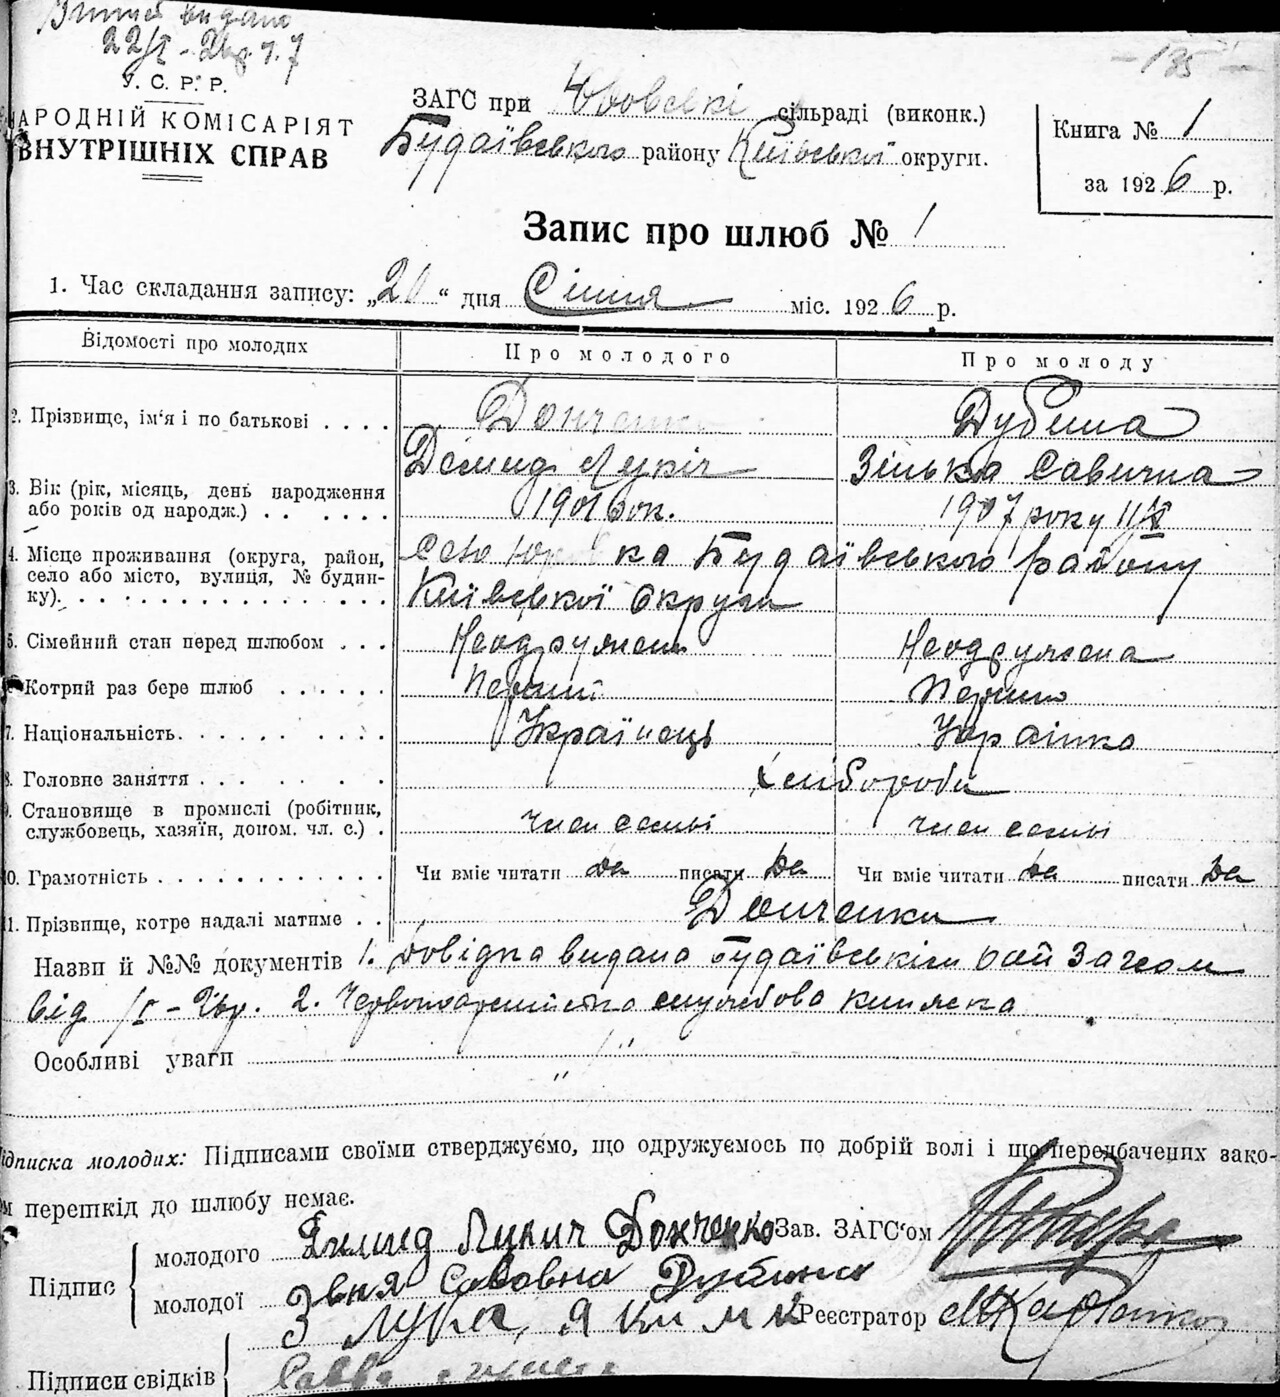 видано
22/I - 26 р. 7
У. С. Р. Р.
НАРОДНІЙ КОМІСАРІЯТ
ВНУТРІШНІХ СПРАВ
- 135 -
ЗАГС при сільраді (виконк.)
Будаївського району Київської округи.
Книга № 1
за 1926 р.
Запис про шлюб № 1
1. Час складання запису: „20“ дня Січня міс. 1926 р.
Відомості про молодих Про молодого Про молоду
2. Прізвище, ім'я і по батькові . . . . Донченко Дубина
Демид Лукіч Зінька Савична
3. Вік (рік, місяць, день народження
або років од народж.) . . . . . . 1901 рок. 1907 року 11/X
4. Місце проживання (округа, район, Село Будаївського району
село або місто, вулиця, № будин-
ку). . . . . . . . . . . . . . . . Київської Округи
5. Сімейний стан перед шлюбом . . . Неодружен Неодружена
6. Котрий раз бере шлюб . . . . . . Перший Перший
7. Національність. . . . . . . . . . Українець Українка
8. Головне заняття . . . . . . . . хлібороби
9. Становище в промислі (робітник,
службовець, хазяїн, допом. чл. с.) . член семьі член семьі
10. Грамотність . . . . . . . . . . . . Чи вміє читати да писати да Чи вміє читати да писати да
11. Прізвище, котре надалі матиме . . Донченки
Назви й №№ документів 1. Довідка видана Будаївськім рай Загсом
від /I - 26 р. 2. Червоноармійська службова книжка
Особливі уваги
Підписка молодих: Підписами своїми стверджуємо, що одружуємось по добрій волі і що передбачених зако-
ом перешкід до шлюбу немає.
Підпис
молодого Демид Лукич Донченко Зав. ЗАГС'ом
молодої Савовна Дубина
Лука Реєстратор
Підписи свідків Савва